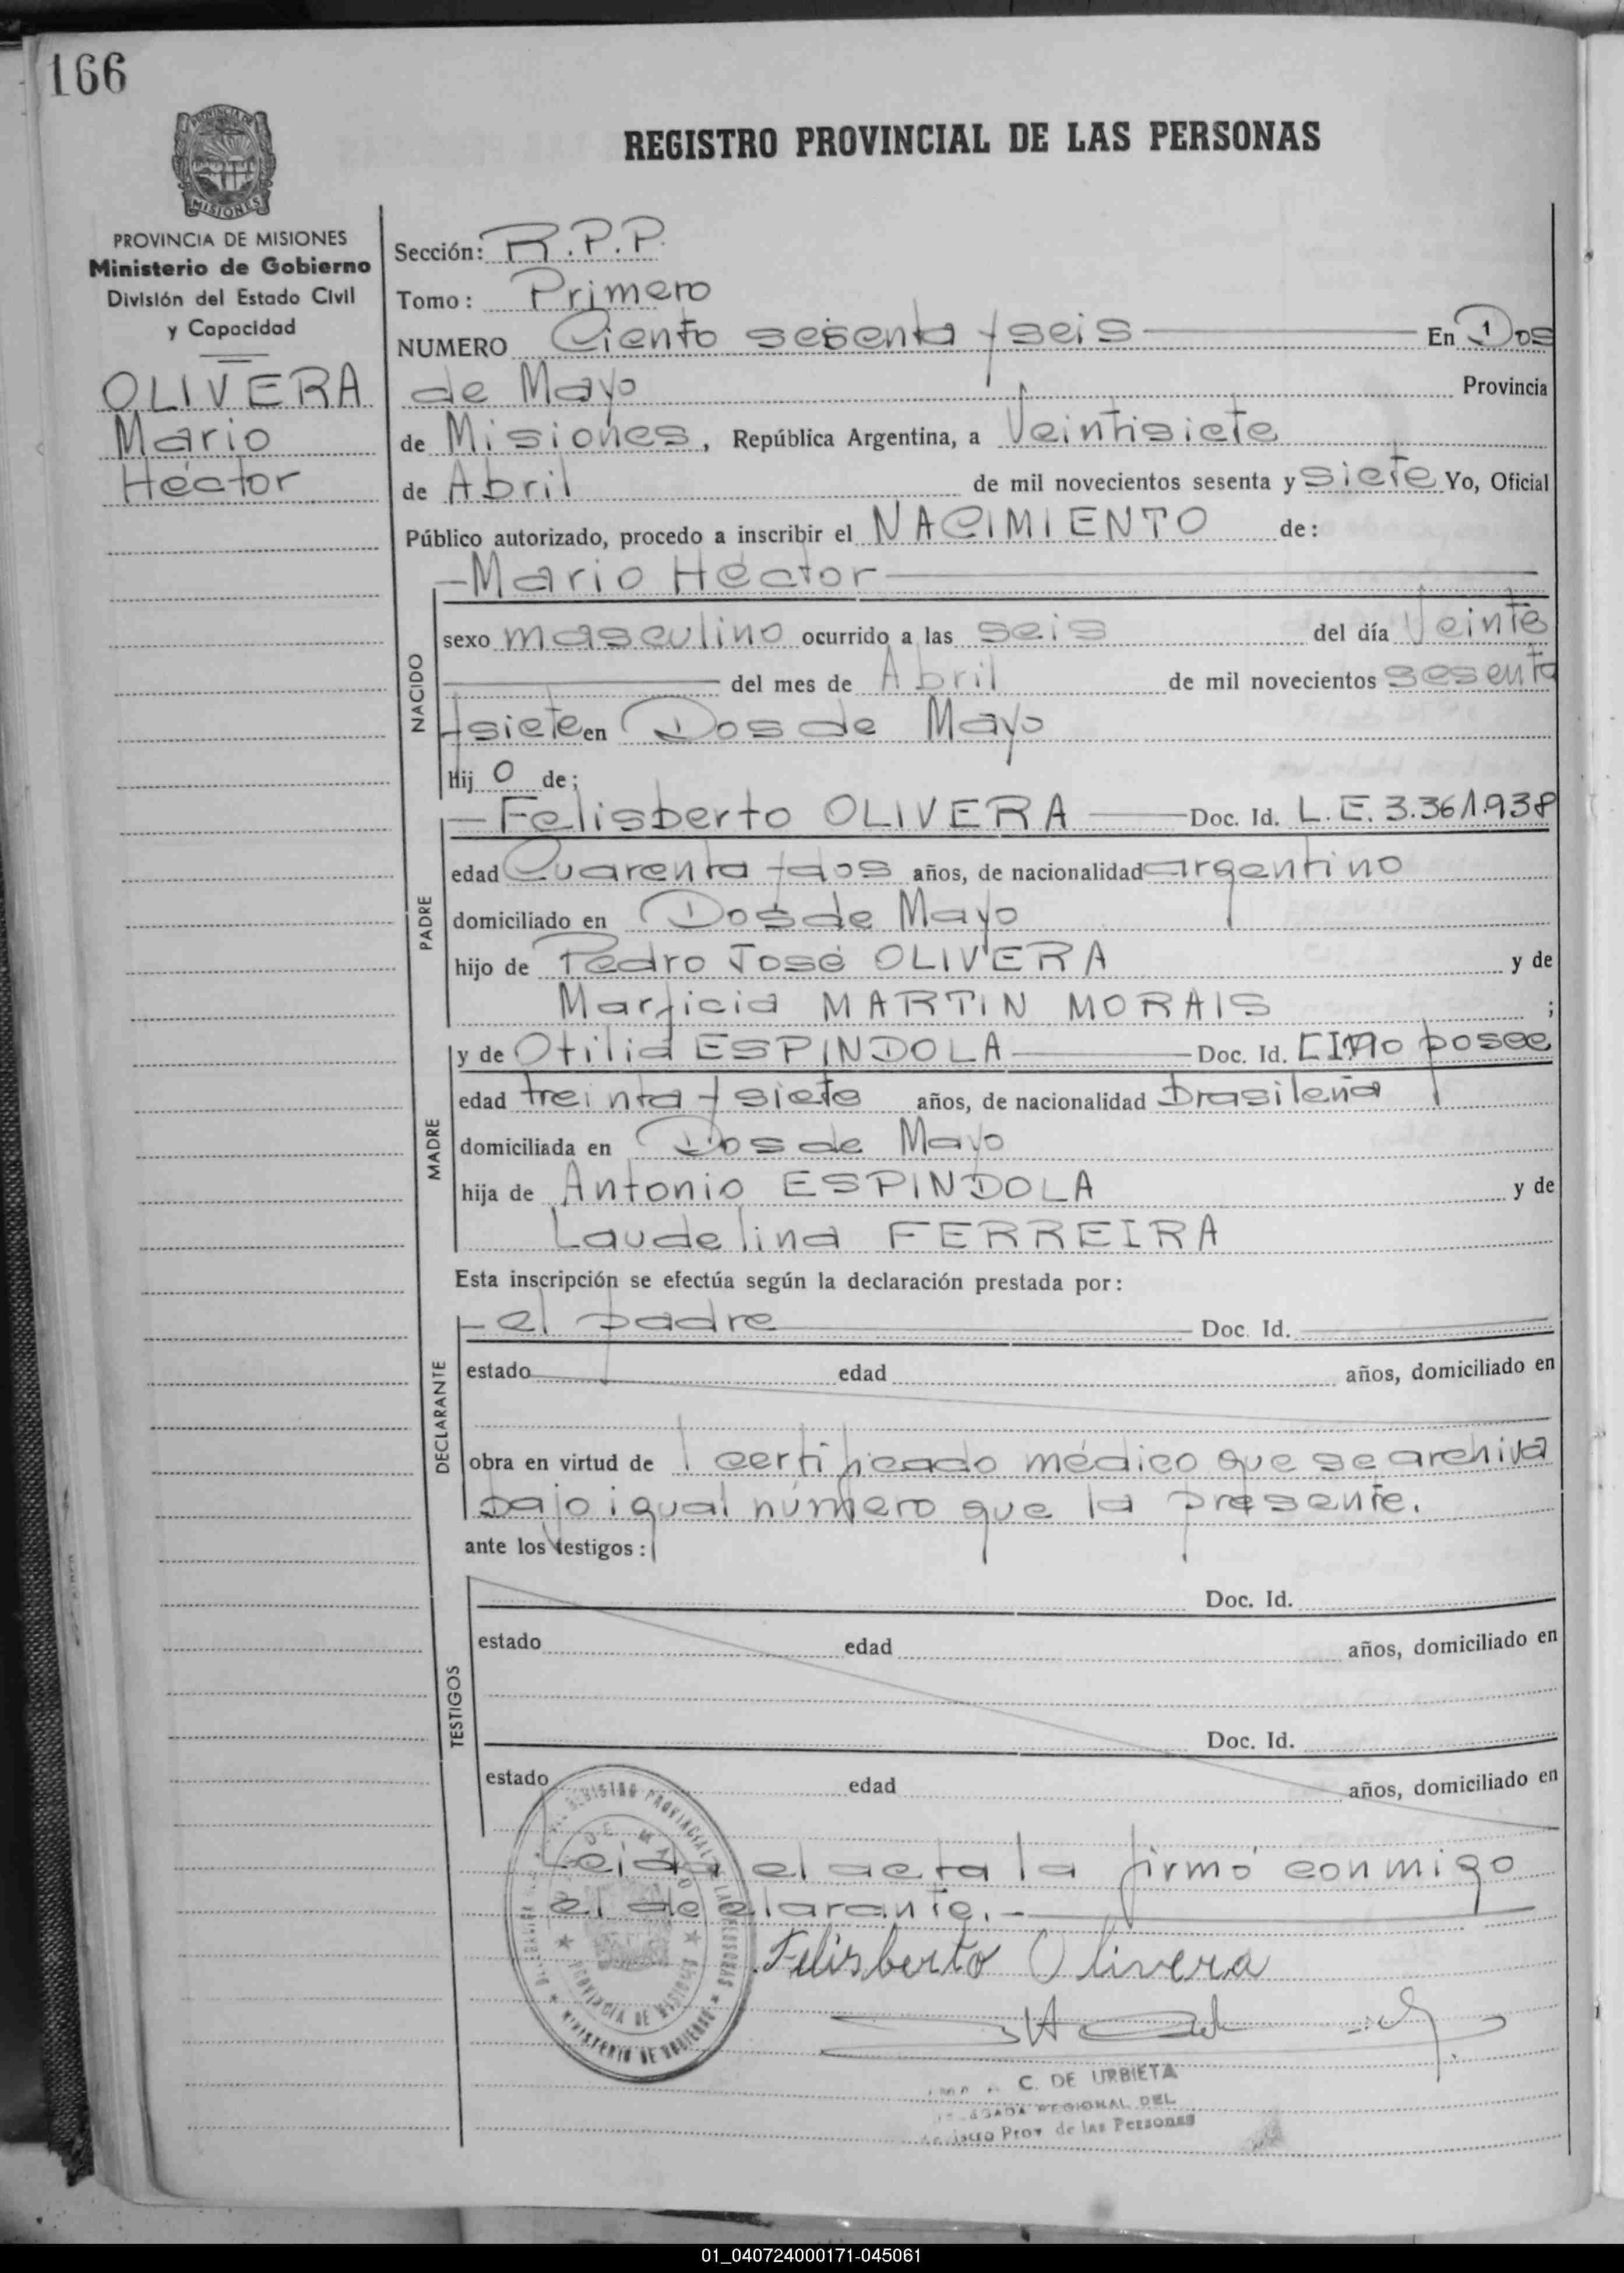 166
PROVINCIA DE
MISIONES
REGISTRO PROVINCIAL DE LAS PERSONAS
PROVINCIA DE MISIONES
Ministerio de Gobierno
División del Estado Civil
y Capacidad
OLIVERA
Mario
Héctor
Sección: R.P.P.
Tomo: Primero
NUMERO Ciento sesenta y seis En Dos
de Mayo Provincia
de Misiones, República Argentina, a Veintisiete
de Abril de mil novecientos sesenta y siete Yo, Oficial
Público autorizado, procedo a inscribir el NACIMIENTO de:
Mario Héctor
NACIDO
sexo masculino ocurrido a las seis del día Veinte
del mes de Abril de mil novecientos sesenta
y siete en Dos de Mayo
Hij o de;
PADRE
Felisberto OLIVERA Doc. Id. L.E. 3.361.938
edad Cuarenta y dos años, de nacionalidad argentino
domiciliado en Dos de Mayo
hijo de Pedro José OLIVERA y de
MARTIN MORAIS ;
MADRE
y de Otilia ESPINDOLA Doc. Id. no posee
edad treinta y siete años, de nacionalidad brasileña
domiciliada en Dos de Mayo
hija de Antonio ESPINDOLA y de
Laudelina FERREIRA
Esta inscripción se efectúa según la declaración prestada por:
DECLARANTE
el padre Doc. Id.
estado edad años, domiciliado en
obra en virtud de 1 certificado médico que se archiva
bajo igual número que la presente.
ante los testigos:
TESTIGOS
Doc. Id.
estado edad años, domiciliado en
Doc. Id.
estado edad años, domiciliado en
Leída el acta la firmó conmigo
el declarante.-
REGISTRO PROVINCIAL DE LAS PERSONAS
MINISTERIO DE GOBIERNO
PROVINCIA DE MISIONES
Felisberto Olivera
C. DE URBIETA
REGIONAL DEL
Prov de las Personas
01_040724000171-045061